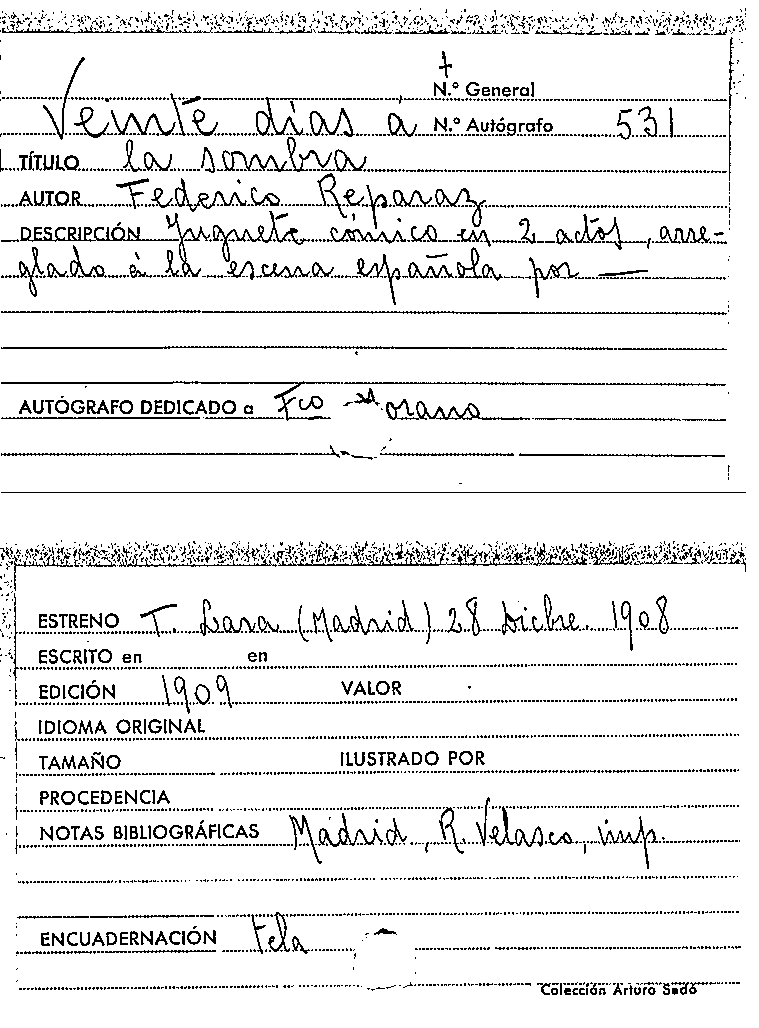 +
N.º General
Veinte días a N.º Autógrafo 531
TÍTULO la sombra
AUTOR Federico Reparaz
DESCRIPCIÓN Juguete cómico en 2 actos, arre-
glado á la escena española por —
AUTÓGRAFO DEDICADO a Fco Morano
ESTRENO T. Lara (Madrid) 28 Dicbre. 1908
ESCRITO en en
EDICIÓN 1909 VALOR
IDIOMA ORIGINAL
TAMAÑO ILUSTRADO POR
PROCEDENCIA
NOTAS BIBLIOGRÁFICAS Madrid, R. Velasco, imp.
ENCUADERNACIÓN tela
Colección Arturo Sedó